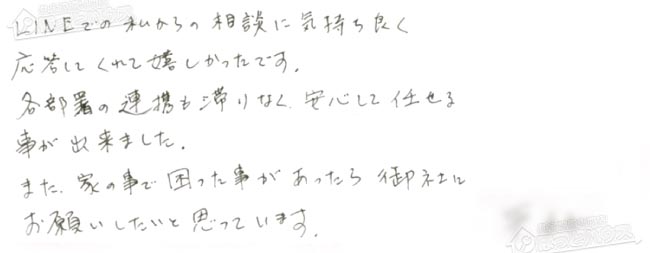 LINEでの私からの相談に気持ち良く
応答してくれて嬉しかったです。
各部署の連携も滞りなく、安心して任せる
事が出来ました。
また、家の事で困った事があったら御社に
お願いしたいと思っています。